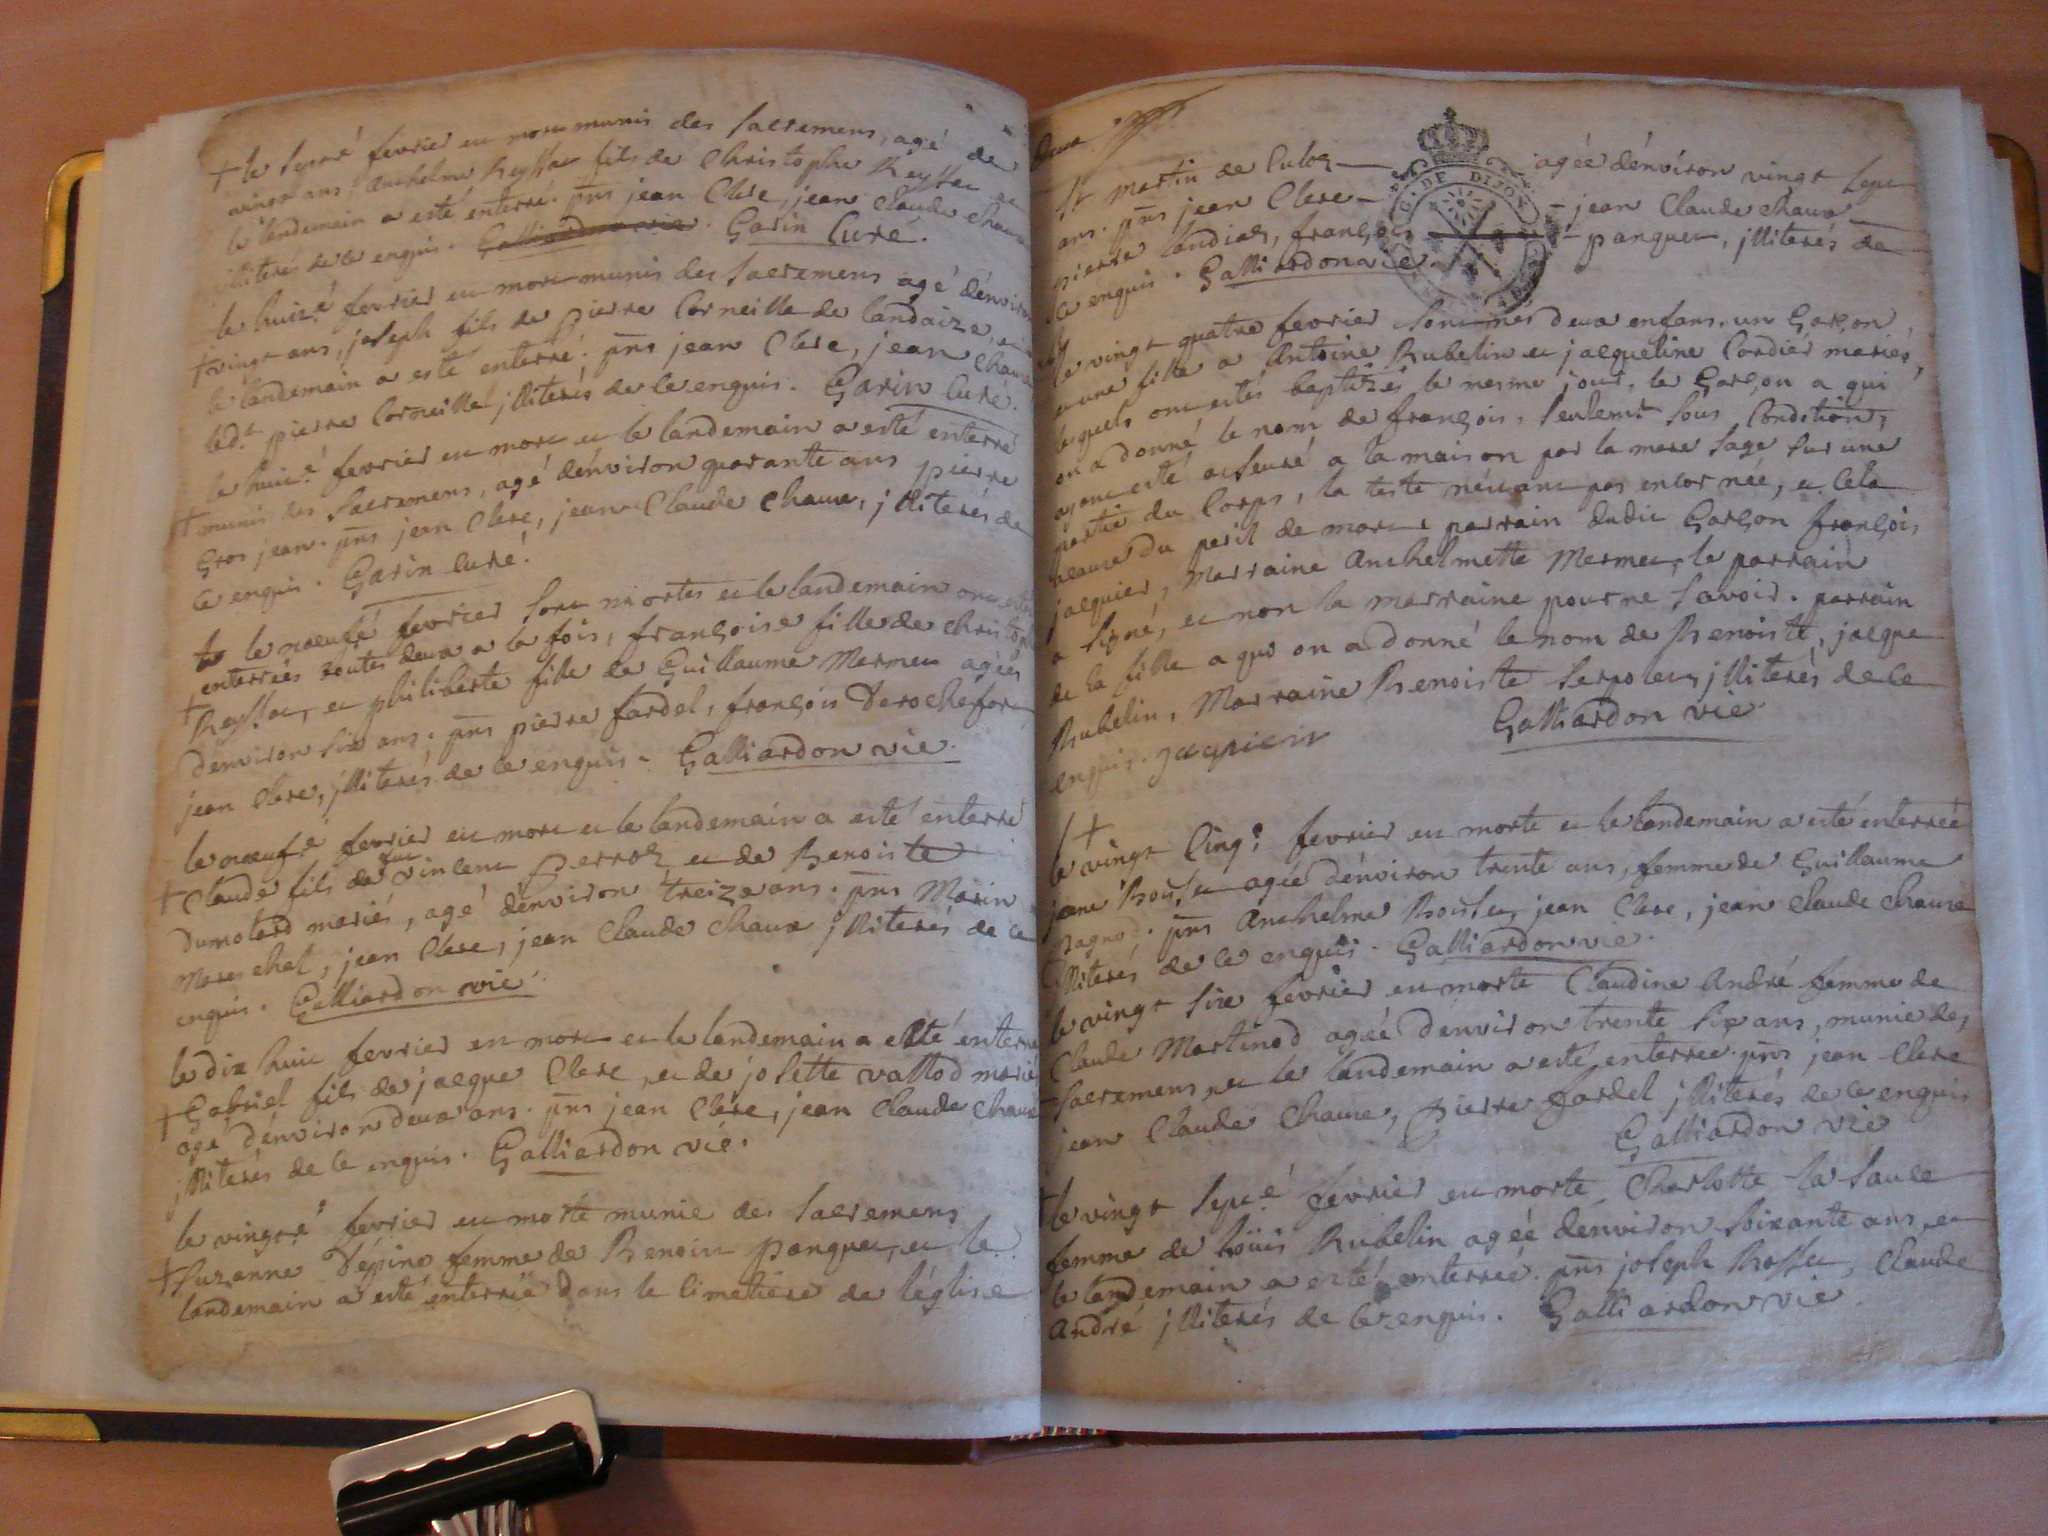 le septé février est mort munis des sacremens, agé de
vingt ans, Anthelme Reyssec fils de Christophe Reyssec et
le landemain a esté enterré. pnts jean Clere, jean Claude chaux
illiterés de ce enquis. Garin Curé.
le huité février est mort munis des sacremens agé dénviron
vingt ans, joseph fils de pierre Corneille de landaize, et
le landemain a esté enterré. pnts jean Clere, jean chaux
led.t pierre Corneille, jlliterés de ce enquis. Garin Curé.
le huité février est mort et le landemain a esté enterré
munis des sacremens, agé dénviron quarante ans pierre
Gros jean. pnts jean Clere, jean Claude chaux, jlliterés de
ce enquis. Garin Curé.
le noeufé fevrier sont mortes et le landemain ont estés
enterrées toutes deux a la fois, françoise fille de christophe
Reyssec, et philiberte fille de Guillaume Mermet agées
dénviron six ans. pnts pierre fardel, françois Derochefort
jean Clere, jlliterés de ce enquis. Galliardon vic.
le noeufé fevrier est mort et le landemain a esté enterré
Claude fils de feu vincent perroz et de Benoiste
Dumolard mariés, agé dénviron treize ans. pnts Marin
Mareschal, jean Clere, jean Claude chaux jlliterés de ce
enquis. Galliardon vic.
le dix huit fevrier est mort et le landemain a esté enterré
Gabriel fils de jacque Clere, et de josette vallod mariés
agé dénviron deux ans. pnts jean Clere, jean Claude chaux
jlliterés de ce enquis. Galliardon vic.
le vingté fevrier est morte munie des sacremens
Suzanne Dépine femme de Benoit panguet, et le
landemain a esté enterrée dans le cimetière de léglise
Deux
St Martin de Culoz agée dénviron vingt sept
C. DE DIJON
ans. pnts jean Clere jean Claude chaux
pierre landiaz, françois panguet, jlliterés de
ce enquis. Galliardon vic
le vingt quatre fevrier sont nés deux enfans, un Garçon
et une fille a Antoine Rubelin et jacqueline Cordier mariés,
lesquels ont estés baptizés le mesme jour, le Garçon a qui
on a donné le nom de françois, seulemt sous Condition,
ayant esté a la maison par la mere sage sur une
partie du Corps, la teste nétant pas encor née, et cela
a cause du peril de mort. parrain dudit Garçon françois
jacquier, Marraine Anthelmette Mermet, le parrain
a signé, et non la marraine pour ne savoir. parrain
de la fille a qui on a donné le nom de Benoiste, jacque
Rubelin, Marraine Benoiste Serpolet, jlliterés de ce
enquis. jacquier Galliardon vic
le vingt Cinq.e fevrier est morte et le landemain a esté enterrée
jeane agée dénviron trente ans, femme de Guillaume
Magnod. pnts Anthelme jean Clere, jean Claude chaux
jlliterés de ce enquis. Galliardon vic.
le vingt six fevrier est morte Claudine André femme de
Claude Martinod agée dénviron trente six ans, munie des
sacremens, et le landemain a esté enterrée. pnts jean Clere
jean Claude Chaux, pierre fardel jlliterés de ce enquis
Galliardon vic
le vingt septé fevrier est morte Charlotte la Saule
femme de loüis Rubelin agée dénviron soixante ans, et
le landemain a esté enterrée. pnts joseph Rossec, Claude
André jlliterés de ce enquis. Galliardon vic